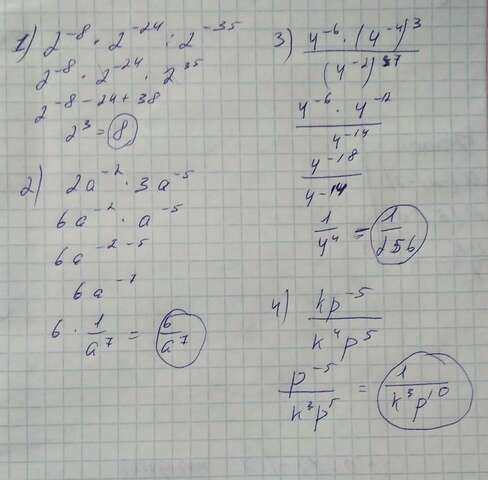 1) 2⁻⁸ · 2⁻²⁴ : 2⁻³⁵
2⁻⁸ · 2⁻²⁴ · 2³⁵
2⁻⁸⁻²⁴⁺³⁸
2³ = 8
2) 2a⁻² · 3a⁻⁵
6a⁻² · a⁻⁵
6a⁻²⁻⁵
6a⁻⁷
6 · 1/a⁷ = 6/a⁷
3) 4⁻⁶ · (4⁻⁴)³
(4⁻²)⁷
4⁻⁶ · 4⁻¹²
4⁻¹⁴
4⁻¹⁸
4⁻¹⁴
1/4⁴ = 1/256
4) kp⁻⁵
k⁴p⁵
p⁻⁵/k³p⁵ = 1/k³p¹⁰